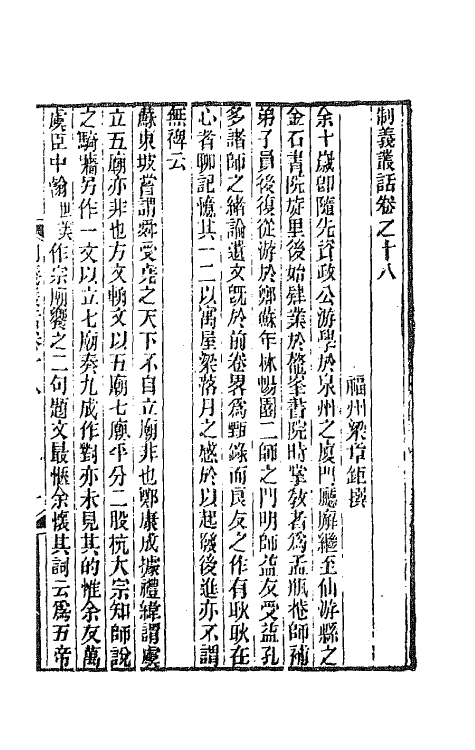 制義叢話卷之十八
福州梁章鉅撰
余十歲卽隨先資政公游學於泉州之廈門廳廨繼至仙游縣之
金石書院旋里後始肄業於鼇峯書院時掌敎者爲孟瓶菴師補
弟子員後復從游於鄭蘇年林暢園二師之門明師益友受益孔
多諸師之緒論遺文旣於前卷畧爲甄錄而良友之作有耿耿在
心者聊記憶其一二以寓屋梁落月之感於以起發後進亦不謂
無裨云
蘇東坡嘗謂舜受堯之天下不自立廟非也鄭康成據禮緯謂虞
立五廟亦非也方文輈文以五廟七廟平分二股杭大宗知師說
之騎牆另作一文以立七廟奏九成作對亦未見其的惟余友萬
虞臣中翰世美作宗廟饗之二句題文最愜余懷其詞云爲五帝